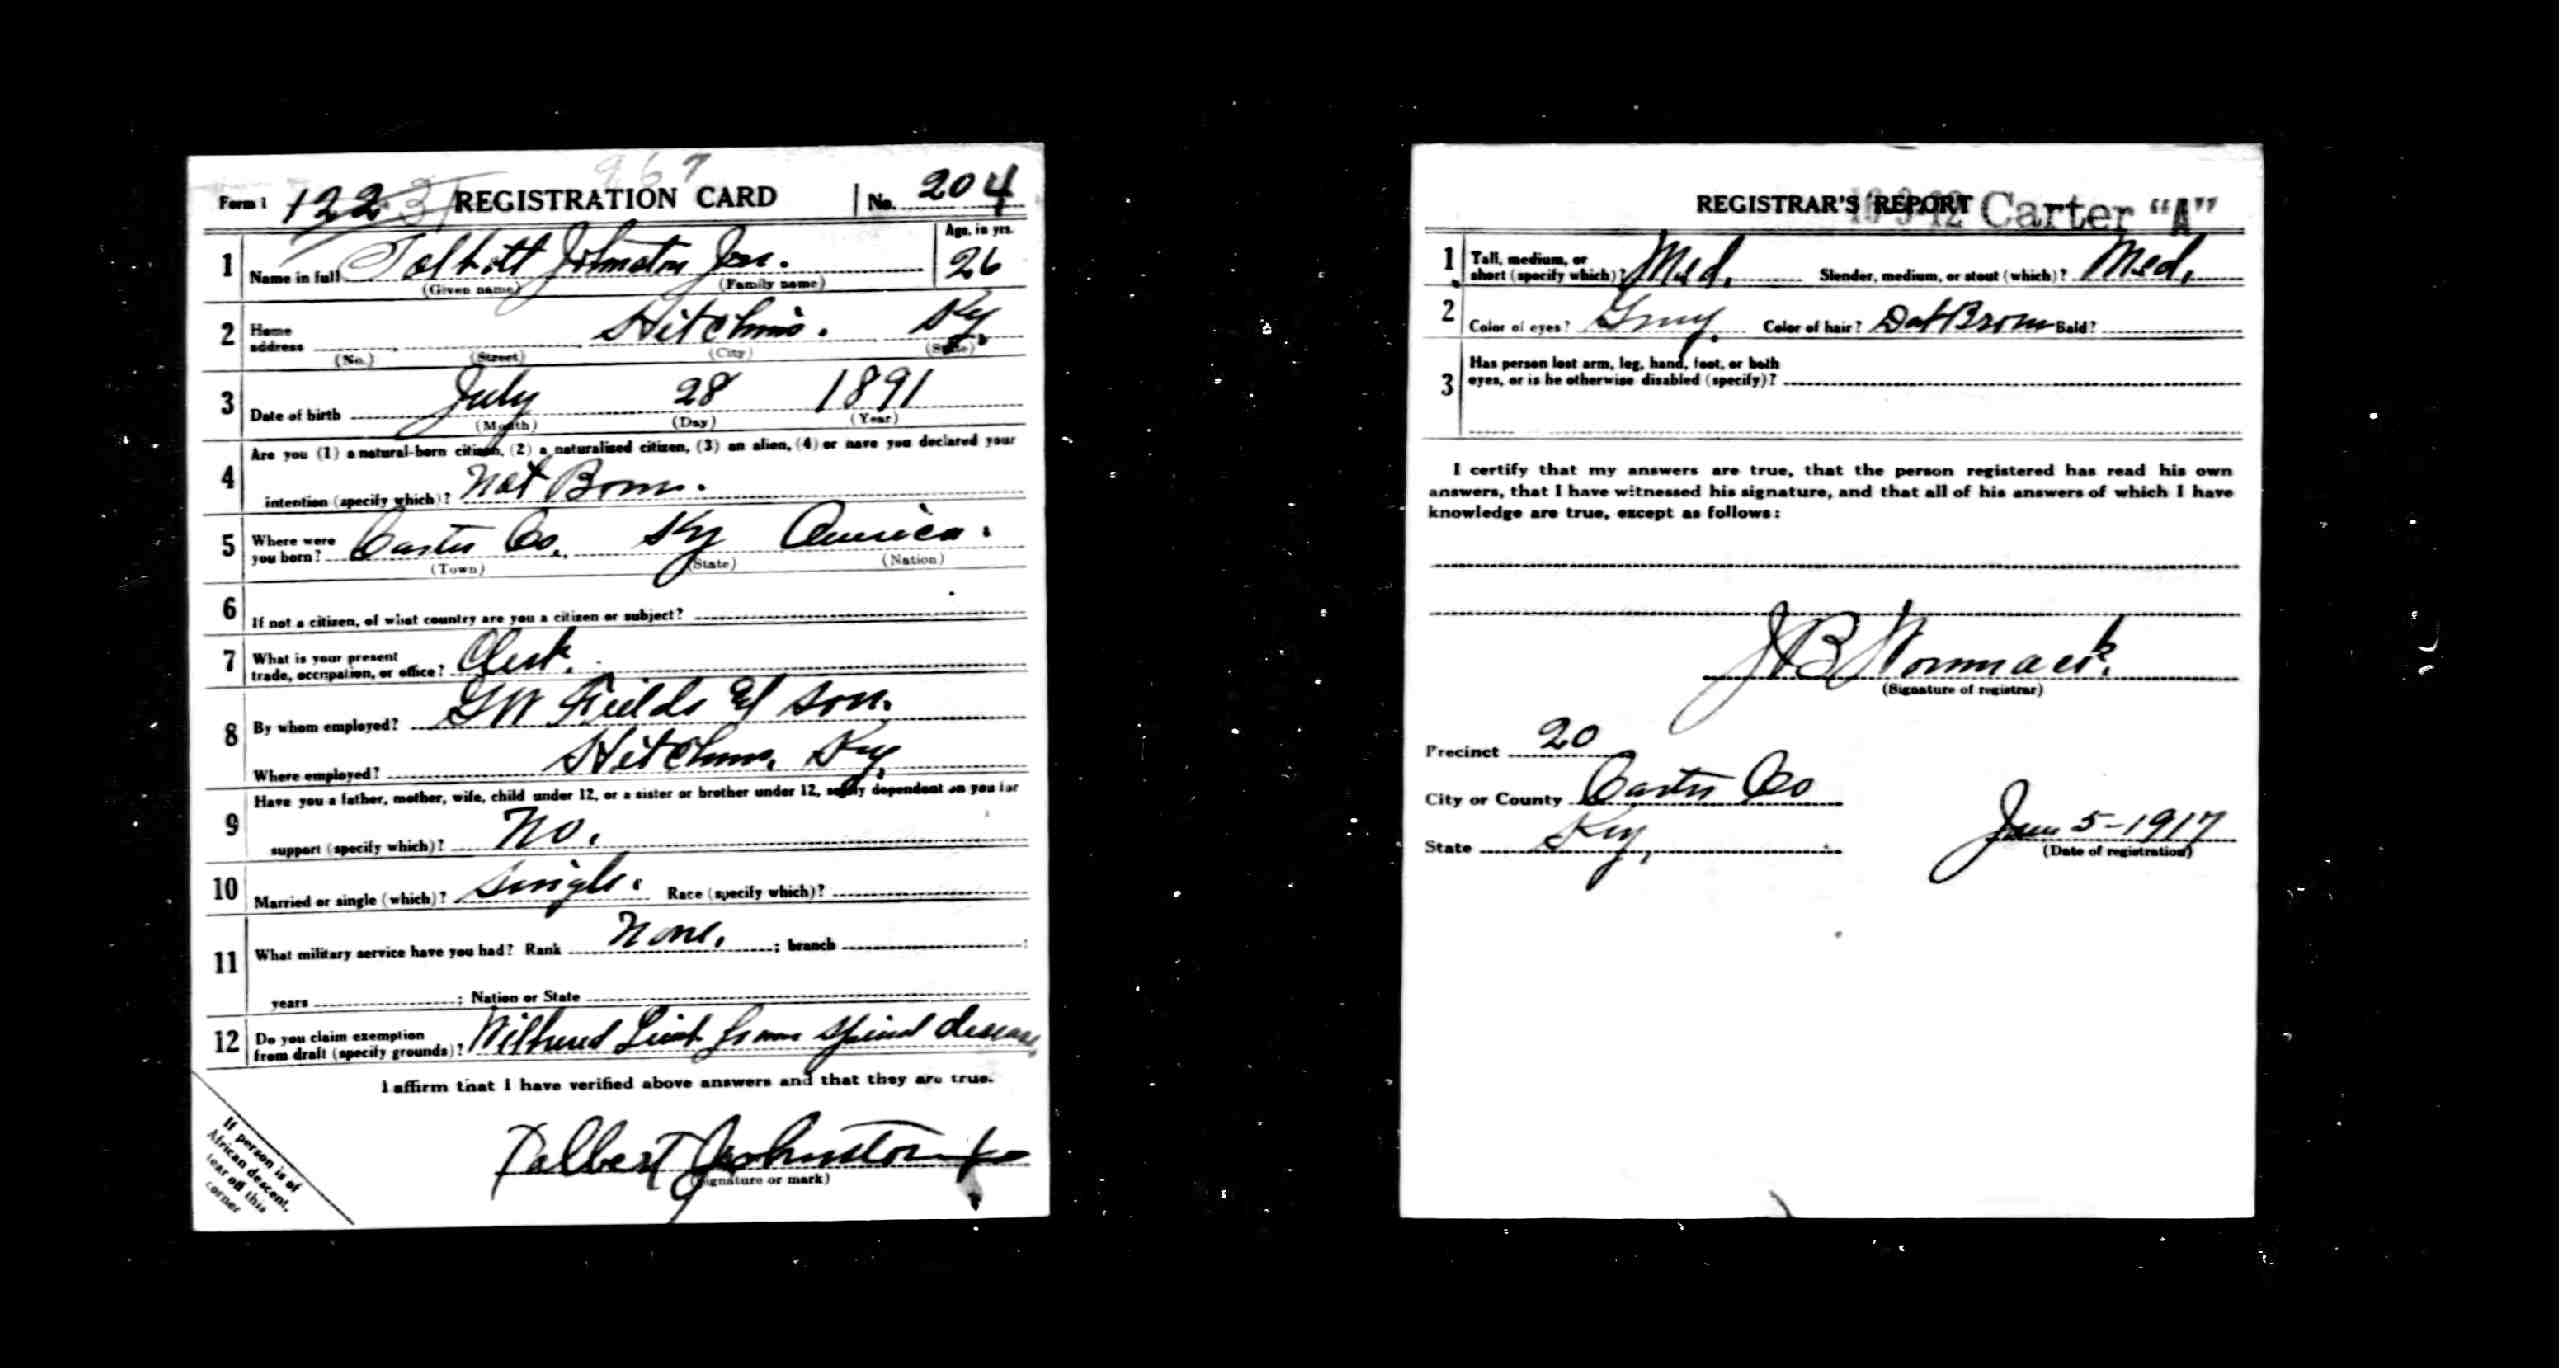 967
Form 1 122 31 REGISTRATION CARD No. 204
1 Name in full Talbott Johnston Jnr. Age, in yrs. 26
(Given name) (Family name)
2 Home address Hitchins. Ky
(No.) (Street) (City) (State)
3 Date of birth July 28 1891
(Month) (Day) (Year)
4 Are you (1) a natural-born citizen, (2) a naturalized citizen, (3) an alien, (4) or have you declared your
intention (specify which)? Nat Born.
5 Where were you born? Carter Co. Ky America.
(Town) (State) (Nation)
6 If not a citizen, of what country are you a citizen or subject?
7 What is your present trade, occupation, or office? Clerk.
8 By whom employed? GW Fields & Son.
Where employed? Hitchins, Ky,
9 Have you a father, mother, wife, child under 12, or a sister or brother under 12, solely dependent on you for
support (specify which)? No.
10 Married or single (which)? Single. Race (specify which)?
11 What military service have you had? Rank None. ; branch
years ; Nation or State
12 Do you claim exemption from draft (specify grounds)? from spinal disease
I affirm that I have verified above answers and that they are true.
Talbert Johnston Jr
(Signature or mark)
If person is of
African descent,
tear off this
corner
REGISTRAR'S REPORT Carter "A"
1 Tall, medium, or short (specify which)? Med. Slender, medium, or stout (which)? Med.
2 Color of eyes? Gray. Color of hair? Brown Bald?
3 Has person lost arm, leg, hand, foot, or both
eyes, or is he otherwise disabled (specify)?
I certify that my answers are true, that the person registered has read his own
answers, that I have witnessed his signature, and that all of his answers of which I have
knowledge are true, except as follows:
J B Wommack.
(Signature of registrar)
Precinct 20
City or County Carter Co
State Ky, June 5-1917
(Date of registration)